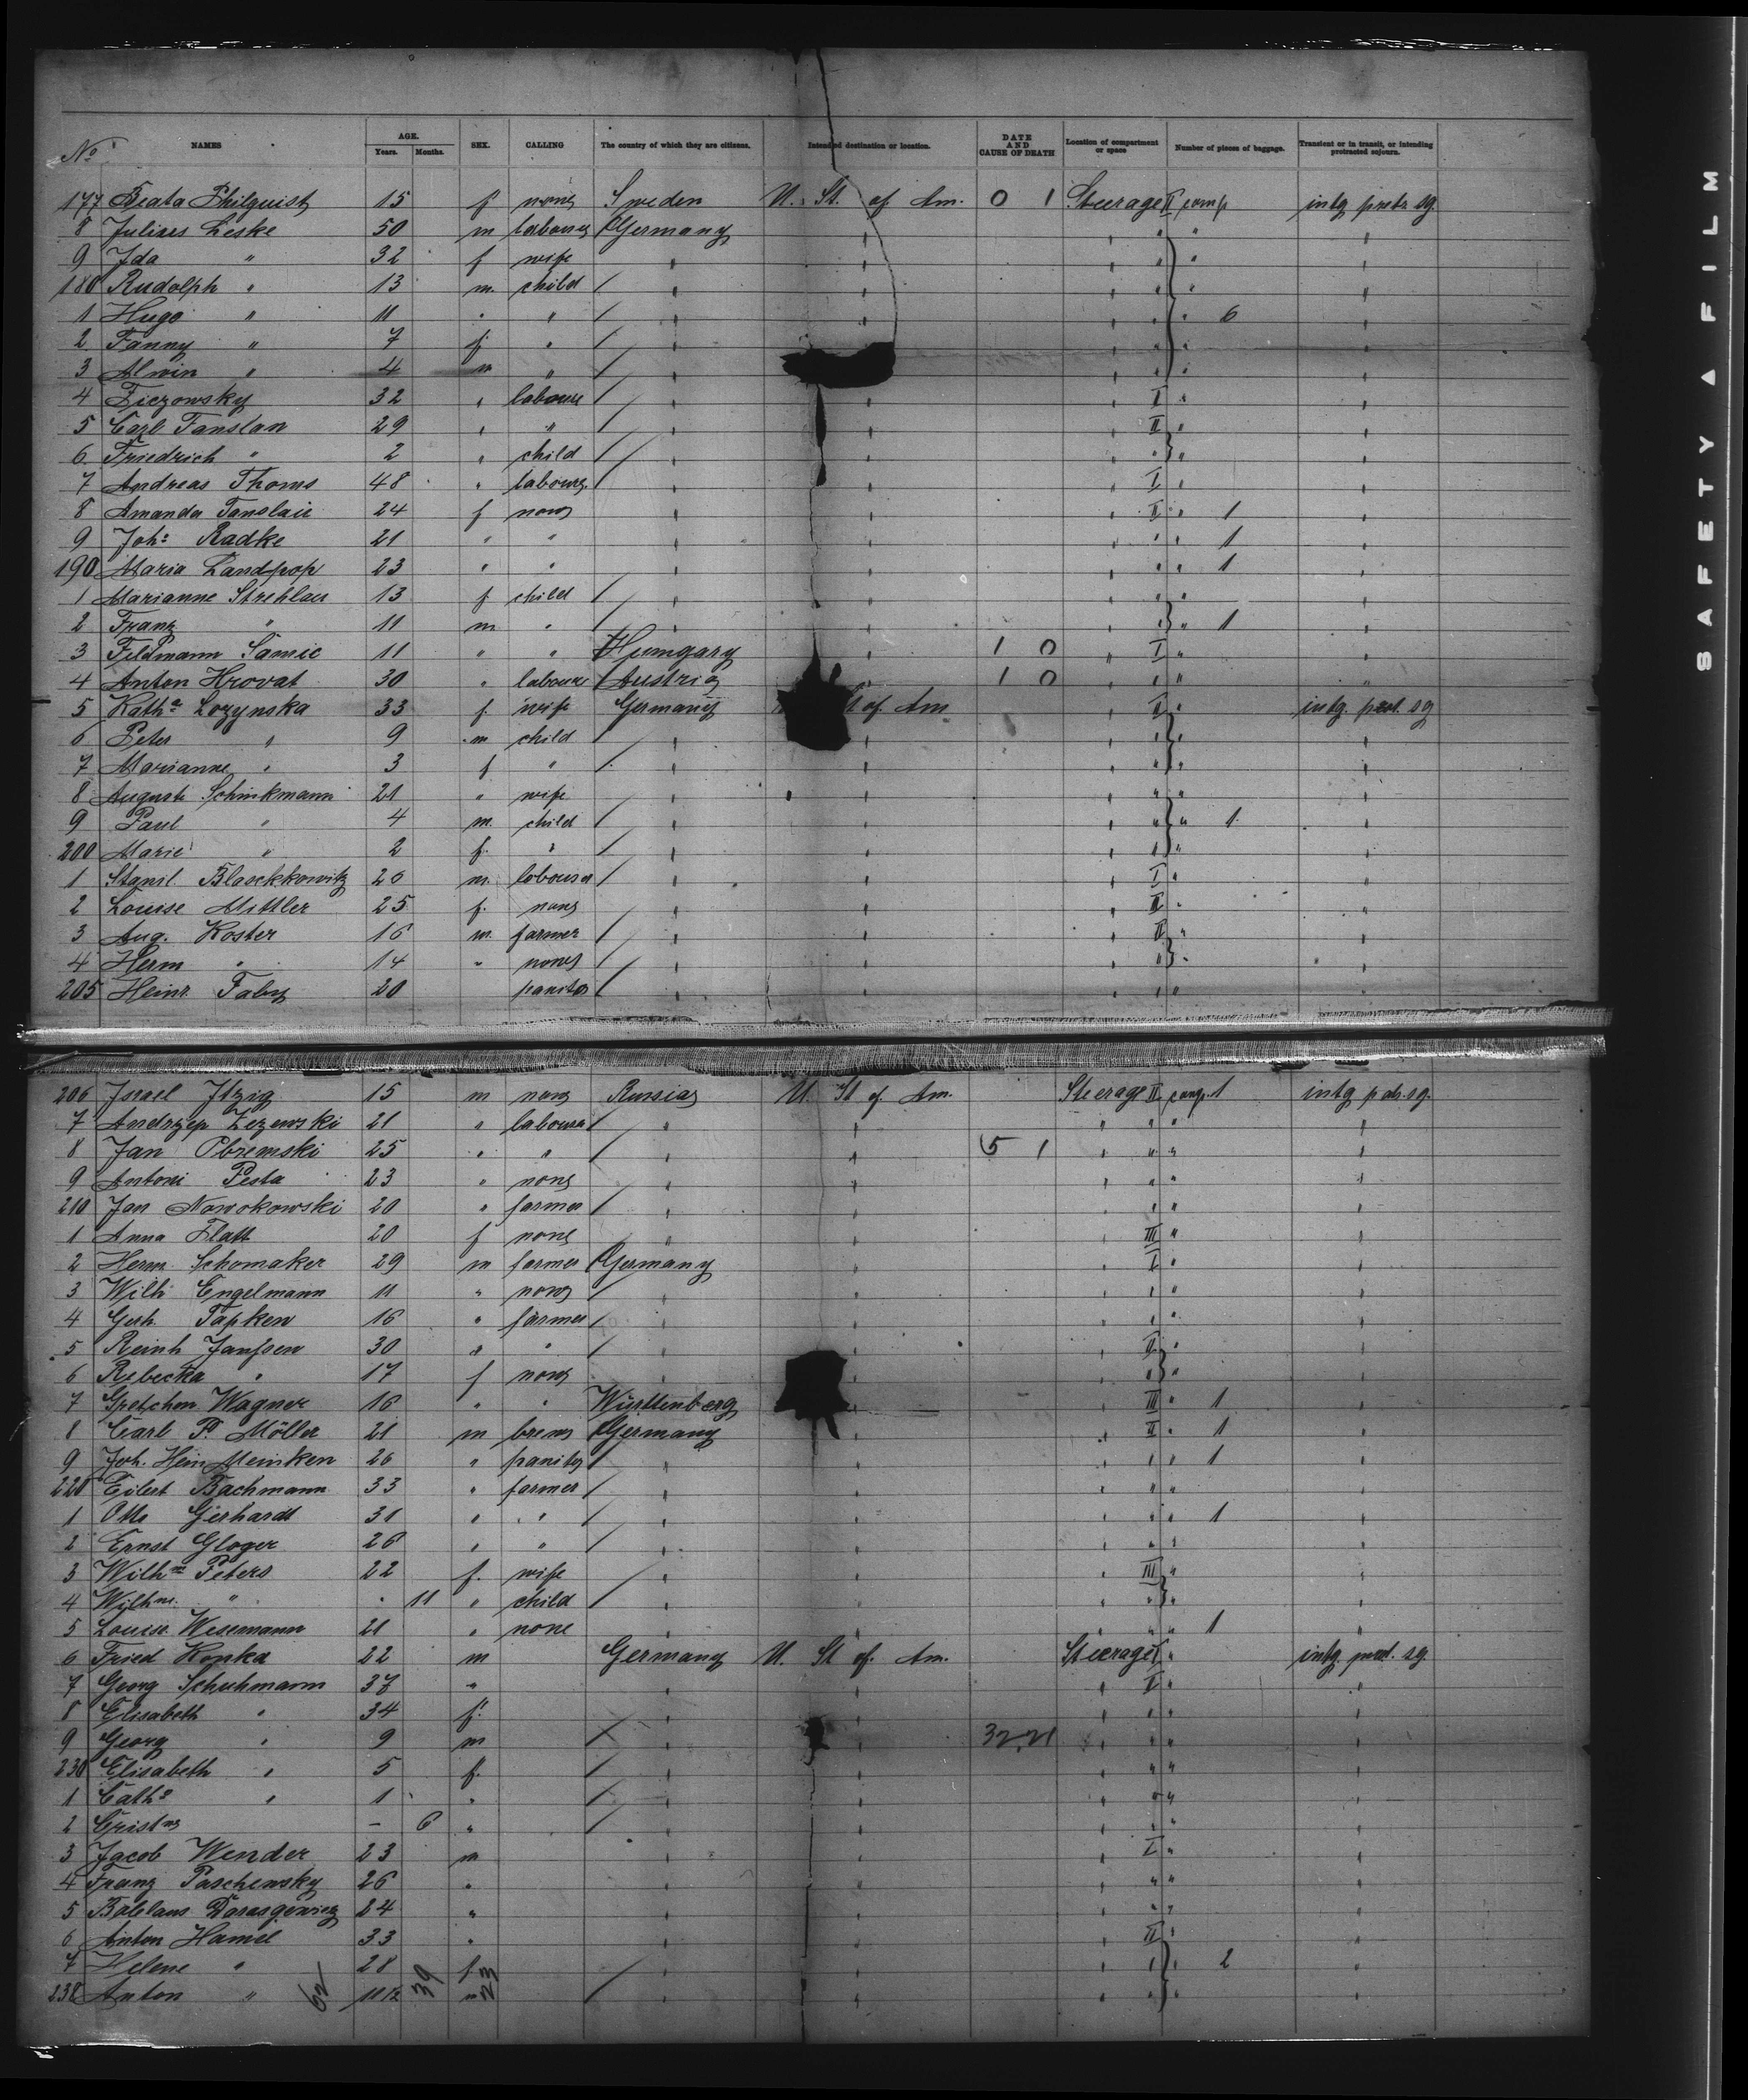 No. NAMES AGE. Years. Months. SEX. CALLING The country of which they are citizens. Intended destination or location. DATE AND CAUSE OF DEATH Location of compartment or space Number of pieces of baggage. Transient or in transit, or intending protracted sojourn.
177 Beata Philquist 15 f none Sweden U. St. of Am. 0 1 Steerage II comp intg protr. sg.
8 Julius Leske 50 m labourer Germany " " " " "
9 Ida " 32 f wife " " " " " "
180 Rudolph " 13 m. child / " " " " " "
1 Hugo " 11 " " / " " " " " 6 "
2 Fanny " 7 f. " / " " " " " "
3 Alwin " 4 m " / " " " " " "
4 Ziezowsky 32 " labourer / " " " I " "
5 Carl Fanslau 29 " " / " " " II " "
6 Friedrich " 2 " child / " " " " " "
7 Andreas Thoms 48 " labourer / " " " I " "
8 Amanda Fanslau 24 f none " " " II " 1 "
9 Joh: Radke 21 " " " " " " " 1 "
190 Maria Landpop 23 " " " " " " " 1 "
1 Marianne Strehlau 13 f child / " " " " " "
2 Franz " 11 m " / " " " " " 1 "
3 Feldmann Samie 11 " " Hungary " 1 0 " I " "
4 Anton Hrovat 30 " labourer Austria " 1 0 " " " "
5 Katha Lozynska 33 f. wife Germany of Am " II " intg. prot. sg
6 Peter " 9 m child / " " " " " "
7 Marianne " 3 f " / " " " " " "
8 Auguste Schinkmann 21 " wife " " " " " "
9 Paul " 4 m. child / " " " " " 1 "
200 Marie " 2 f. " / " " " " " "
1 Stanil. Blasckkowitz 26 m labourer / " " " I " "
2 Louise Mittler 25 f. none " " " II " "
3 Aug. Koster 16 m. farmer / " " " II " "
4 Herm " 14 " none / " " " " " "
205 Heinr. Faby 20 / " " " " " "
206 Israel Itzig 15 m none Russia U. St of. Am. Steerage II comp. 1 intg protr. sg.
7 Andrzep Zezewski 21 " labourer / " " " " " "
8 Jan Obremski 25 " " / " " 5 1 " " " "
9 Antoni Pesta 23 " none " " " " " "
210 Jan Nowokowski 20 " farmer / " " " " " "
1 Anna Flatt 20 f none " " " III " "
2 Herm. Schomaker 29 m farmer Germany " " I " "
3 Wilh Engelmann 11 " none / " " " " " "
4 Gerh. Tapken 16 " farmer / " " " " " "
5 Reinh Janssen 30 " " / " " " II " "
6 Rebecka " 17 f none " " " " " "
7 Gretchen Wagner 16 " " Württenberg " " III " 1 "
8 Carl P. Möller 21 m Germany " " II " 1 "
9 Joh. Hein Meinken 26 " / " " " " " 1 "
220 Eilert Bachmann 33 " farmer / " " " " " "
1 Otto Gerhardt 31 " " / " " " " " 1 "
2 Ernst Gloger 26 " " / " " " " " "
3 Wilhne Peters 22 f. wife " " " III " "
4 Wilhne. " " 11 " child / " " " " " "
5 Louise Wesemann 21 " none " " " " " 1 "
6 Fried Konka 22 m Germany U. St of. Am. Steerage I " intg. prot. sg.
7 Georg Schuhmann 37 " " " " II " "
8 Elisabeth " 34 f. " " " " " "
9 Georg " 9 m / " " 32.21 " " " "
230 Elisabeth " 5 f. / " " " " " "
1 Catha " 1 " / " " " " " "
2 Cristne - 6 " / " " " " " "
3 Jacob Wender 23 m " " " I " "
4 Franz Paschensky 26 " " " " " " "
5 Darasgewicz 24 " " " " " " "
6 Anton Hamel 33 " " " " II " "
7 Helene " 28 f. " " " " " 2 "
238 Anton " 11/12 m / " " " " " "
62 39 23
SAFETY ▲ FILM